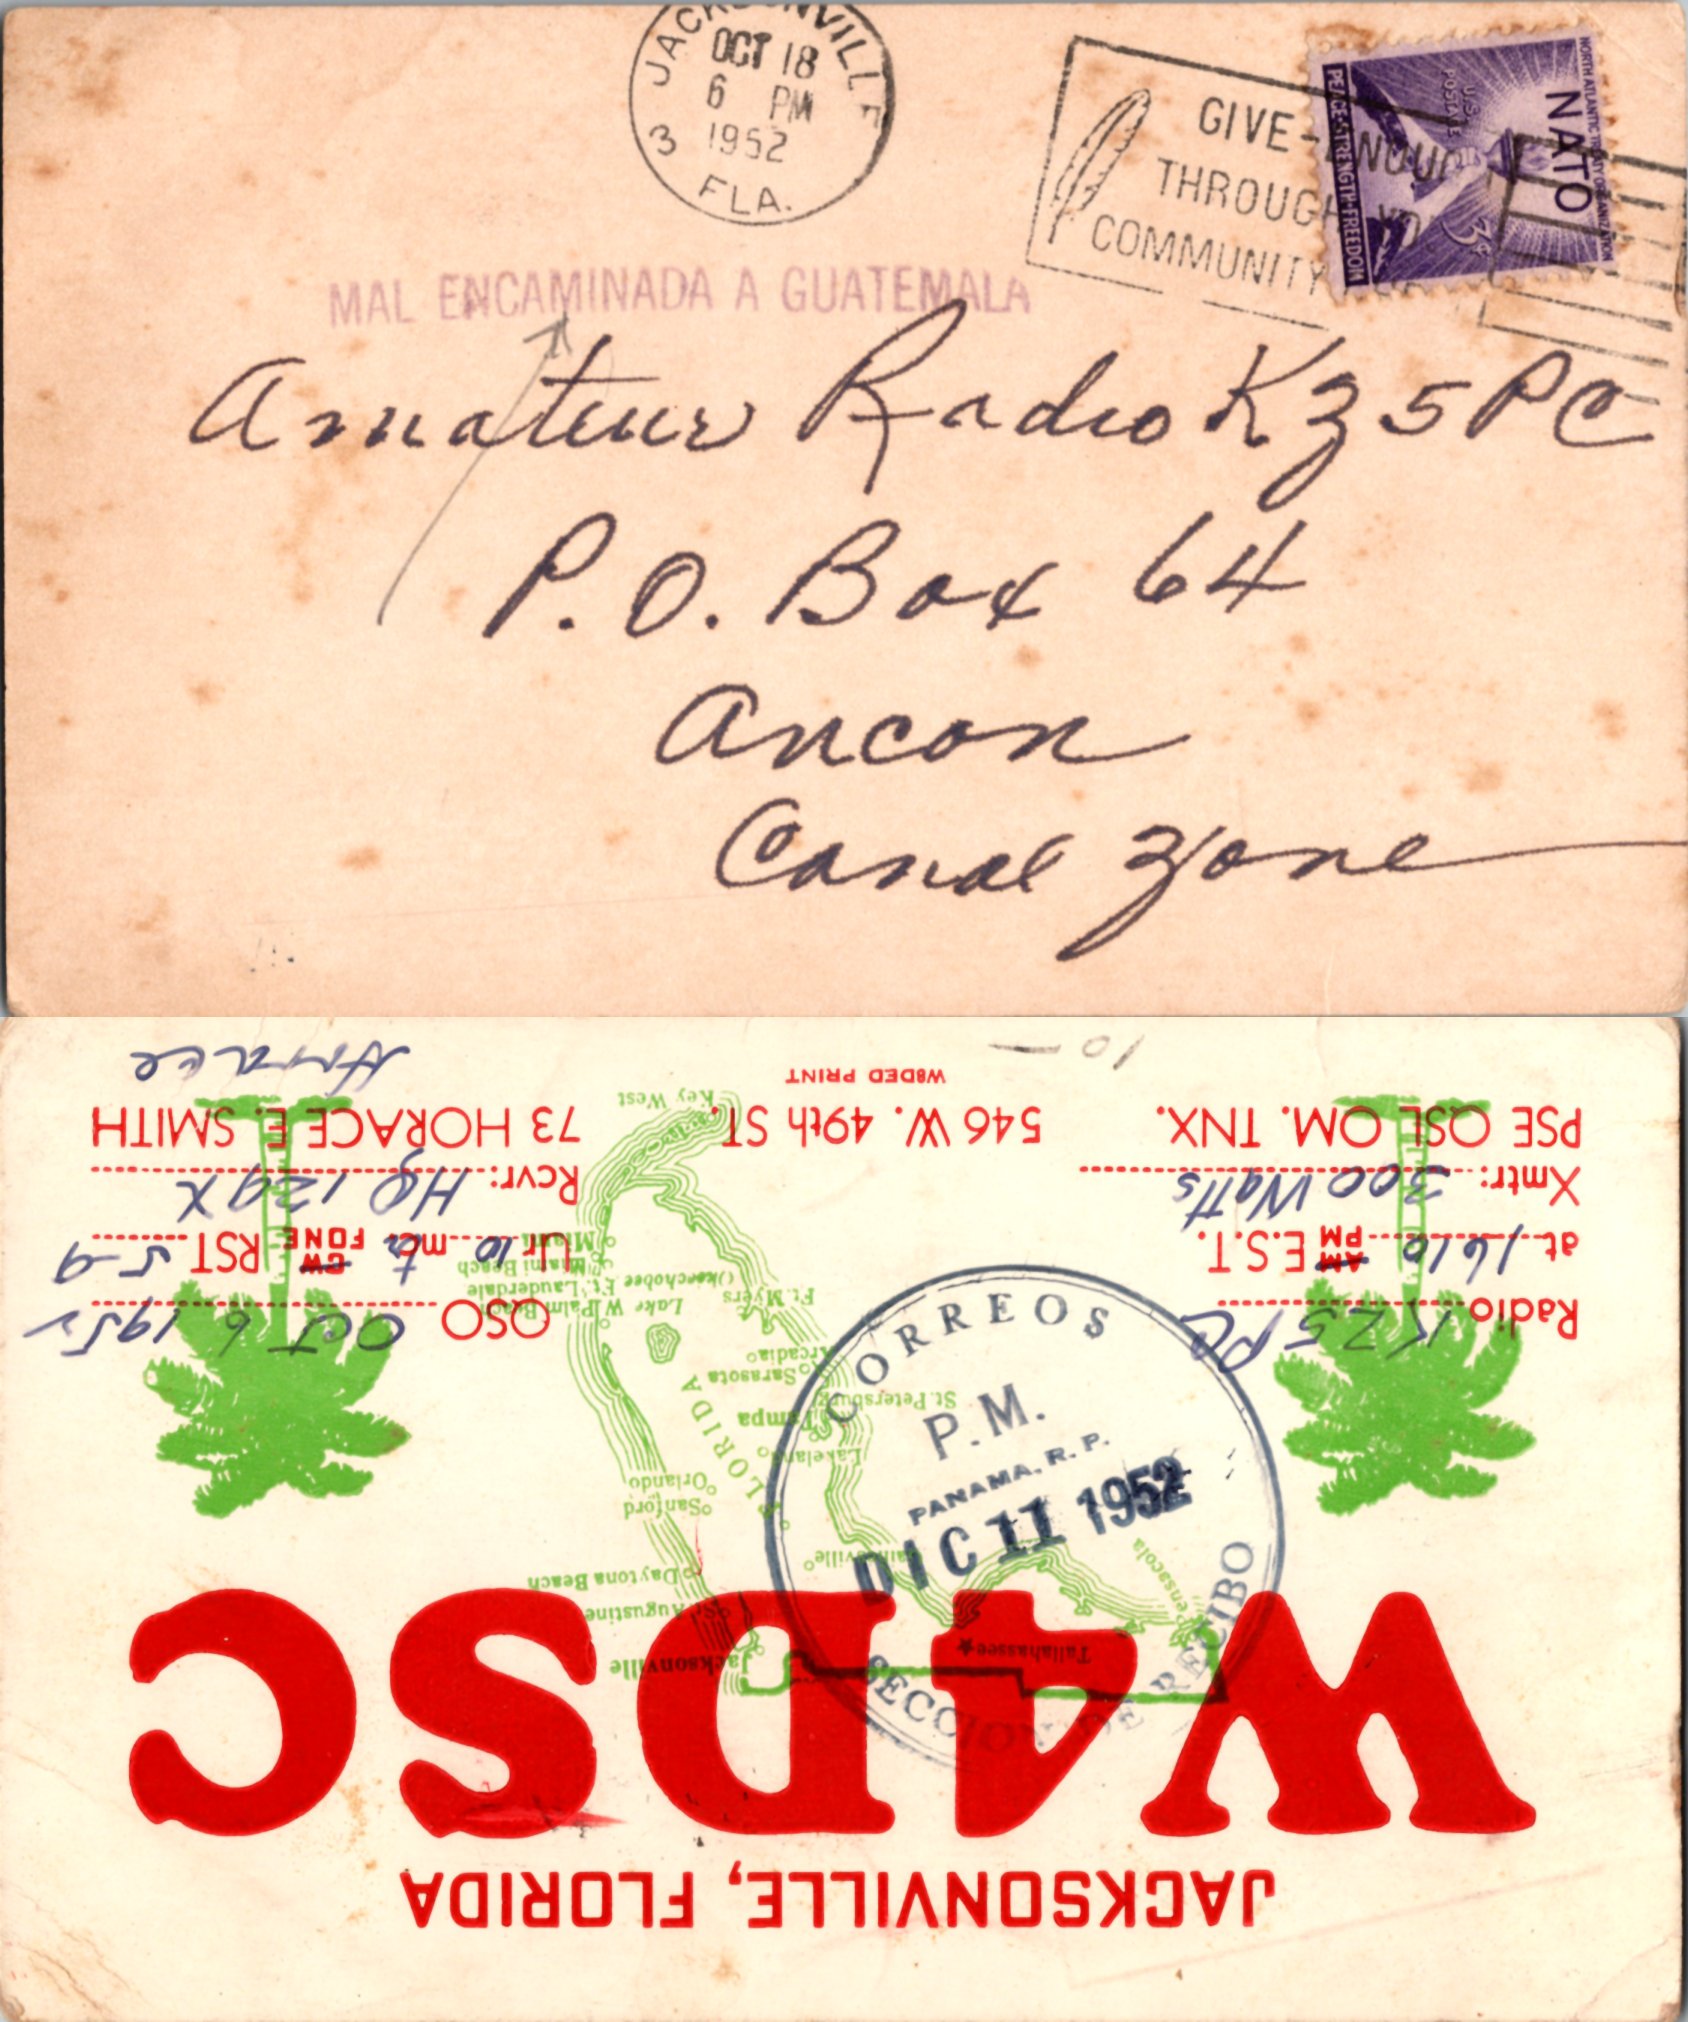 JACKSONVILLE
OCT 18
6 PM
1952
3
FLA.
GIVE-ENOUGH
THROUGH YOUR
COMMUNITY
NORTH ATLANTIC TREATY ORGANIZATION
NATO
U.S. POSTAGE
3¢
PEACE·STRENGTH·FREEDOM
MAL ENCAMINADA A GUATEMALA
Amateur Radio KZ5PC
P.O. Box 64
Ancon
Canal Zone
JACKSONVILLE, FLORIDA
W4DSC
Tallahassee
Jacksonville
Pensacola
St. Augustine
Gainesville
Daytona Beach
Sanford
Orlando
FLORIDA
Lakeland
Tampa
St. Petersburg
Sarasota
Arcadia
Lake Okeechobee
Ft. Myers
W. Palm Beach
Ft. Lauderdale
Miami Beach
Miami
Key West
CORREOS
P.M.
PANAMA, R. P.
DIC 11 1952
SECCION DE RECIBO
Radio KZ5PC QSO OCT 6 1952
at 1610 AM PM E.S.T. Ur 10 mtr CW FONE RST 5-9
Xmtr: 300 Watts Rcvr: HQ 129X
PSE QSL OM. TNX. 546 W. 49th ST. 73 HORACE E. SMITH
W8DED PRINT
10—
Horace